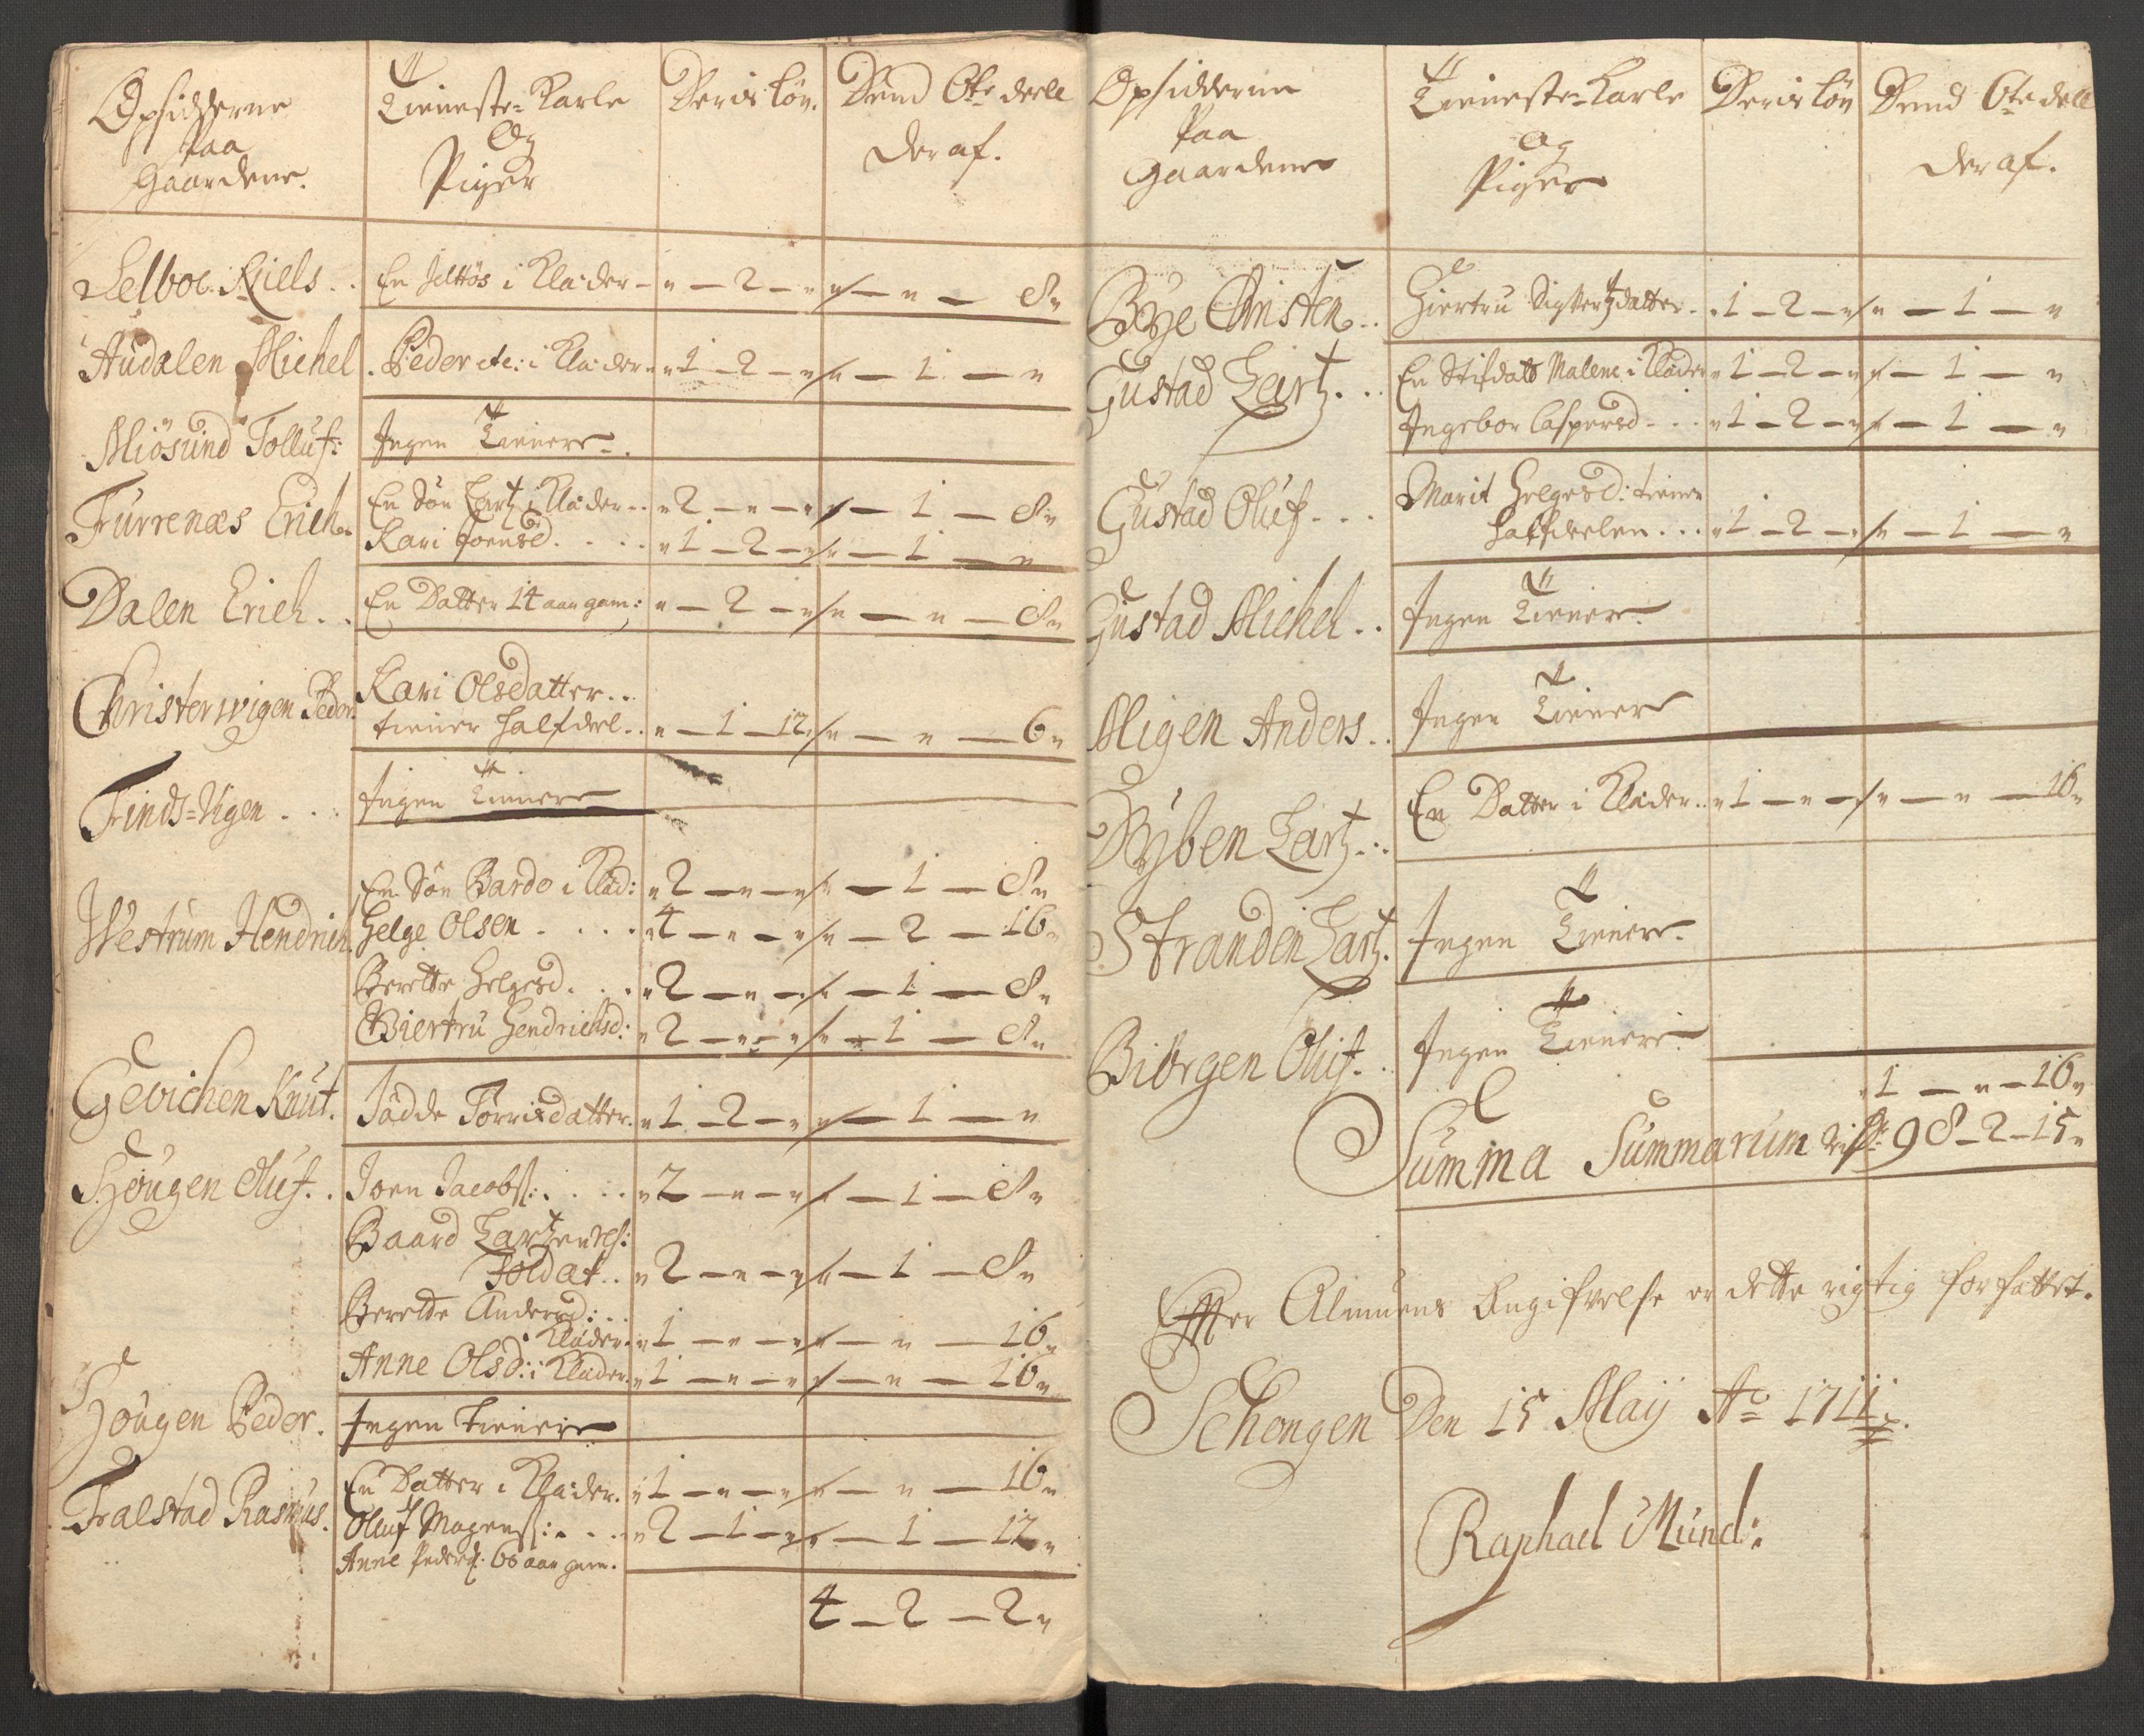 Opsidderne
Paa
Gaardene.
Tieneste=Karle
Og
Piger
Deris Løn.
Dend 6te deell
der af.
Selboe Niels . . En i Klæder - " - 2 - " - " - 8 "
Audalen Michel . Peder etc: i Klæder " 1 - 2 - " - 1 - "
Miøsund Tolluf: Ingen Tienere.
Furrenæs Erich. En Søn Lartz i Klæder . . " 2 - " - " - 1 - 8 "
Kari Joensd . . . . " 1 - 2 - " - 1 - "
Dalen Erich . . En Datter 14 aar gam: " - 2 - " - " - 8 "
Christervigen Peder. Kari Olsdatter . .
tiener halfdeel . . " - 1 - 12 " - " - 6 "
Finds=Vigen . . . Ingen Tienere
Westrum Hendrich En Søn Bardo i Klæd: " 2 - " - " - 1 - 8 "
Helge Olsen . . . . " 4 - " - " - 2 - 16 "
Berette Helgesd . . . " 2 - " - " - 1 - 8 "
Giertru Hendrichsd: " 2 - " - " - 1 - 8 "
Gevichen Knut. Sadde Torrisdatter. " 1 - 2 - " - 1 - "
Hougen Oluf . . Joen Jacobs: . . . . " 2 - " - " - 1 - 8 "
Baard Lartzen
Soldat . . " 2 - " - " - 1 - 8 "
Berette Andersd: . .
i Klæder. " 1 - " - " - " - 16 "
Anne Olsd: i Klæder. " 1 - " - " - " - 16 "
Hougen Peder. Ingen Tienere
Tralstad Rasmus. En Datter i Klæder. " 1 - " - " - " - 16 "
Oluf Mogens: . . . " 2 - 1 - " - 1 - 12 "
Anne Peders. 60 aar gam.
4 - 2 - 2 "
Opsidderne
Paa
Gaardene
Tieneste=Karle
Og
Piger
Deris Løn
Dend 6te deell
der af.
Bye Christen . . Giertru Sivertzdatter . . 1 - 2 - " - 1 - "
Gustad Lartz . . . En Stifdatt Malene i Klæder " 1 - 2 - " - 1 - "
Ingebor Caspersd - . . " 1 - 2 - " - 1 - "
Gustad Oluf - . . Marit Helgesd: tiener
halfdeelen . . . " 1 - 2 - " - 1 - "
Gustad Michel . . Ingen Tienere
Migen Anders . . Ingen Tienere
Dyben Lartz . . . En Datter i Klæder . . " 1 - " - " - " - 16 "
Stranden Lartz. Ingen Tienere.
Biörgen Oluf . . Ingen Tienere
" 1 - " - 16 "
Summa Summarum 98 - 2 - 15 "
Effter Almuens Angifvelse er dette rigtig forfattet.
Schongen Den 15 Maij Ao 1711.
Raphael Mund: